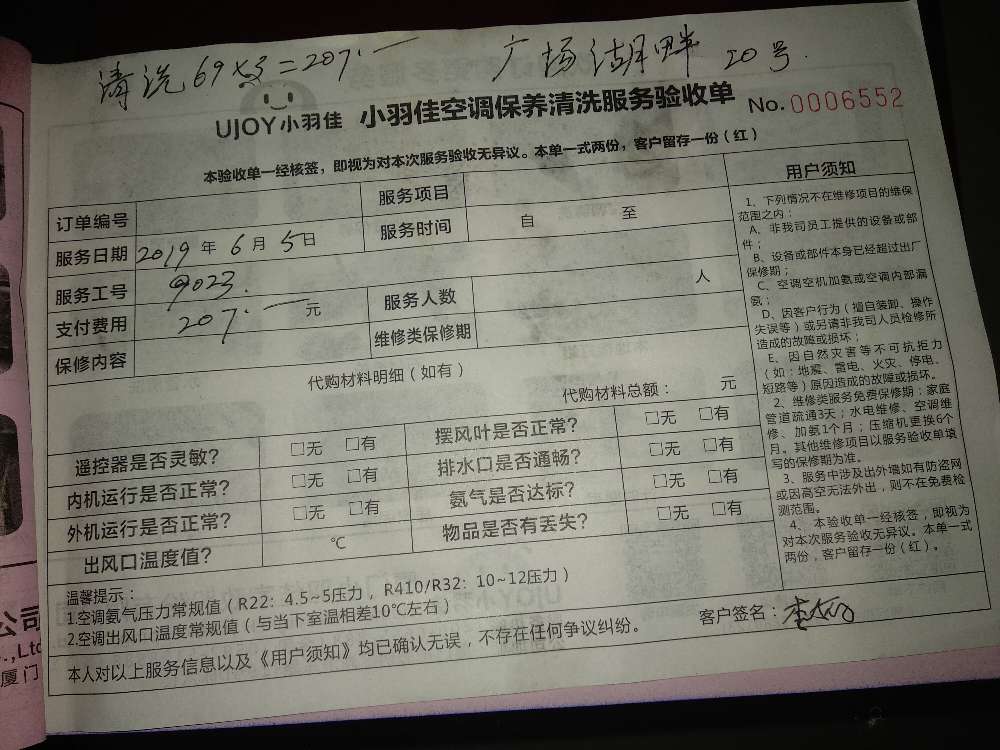 清洗69×3=207.一
广场湖畔 20号.
UJOY小羽佳 小羽佳空调保养清洗服务验收单 No.0006552
本验收单一经核签，即视为对本次服务验收无异议。本单一式两份，客户留存一份（红）
订单编号
服务项目
服务日期 2019年6月5日
服务时间 自 至
服务工号 9023.
支付费用 207.一元
服务人数 人
保修内容
维修类保修期
代购材料明细（如有）
代购材料总额： 元
遥控器是否灵敏？ □无 □有
摆风叶是否正常？ □无 □有
内机运行是否正常？ □无 □有
排水口是否通畅？ □无 □有
外机运行是否正常？ □无 □有
氨气是否达标？ □无 □有
出风口温度值？ ℃
物品是否有丢失？ □无 □有
温馨提示：
1.空调氨气压力常规值（R22：4.5~5压力，R410/R32：10~12压力）
2.空调出风口温度常规值（与当下室温相差10℃左右）
客户签名：
本人对以上服务信息以及《用户须知》均已确认无误，不存在任何争议纠纷。
用户须知
1、下列情况不在维修项目的维保
范围之内：
A、非我司员工提供的设备或部
件；
B、设备或部件本身已经超过出厂
保修期；
C、空调空机加氨或空调内部漏
氨；
D、因客户行为（擅自装卸、操作
失误等）或另请非我司人员检修所
造成的故障或损坏；
E、因自然灾害等不可抗拒力
（如：地震、雷电、火灾、停电、
短路等）原因造成的故障或损坏。
2、维修类服务免费保修期：家庭
管道疏通3天；水电维修、空调维
修、加氨1个月；压缩机更换6个
月。其他维修项目以服务验收单填
写的保修期为准。
3、服务中涉及出外墙如有防盗网
或因高空无法外出，则不在免费检
测范围。
4、本验收单一经核签，即视为
对本次服务验收无异议。本单一式
两份，客户留存一份（红）。
公司
.,Ltd
厦门